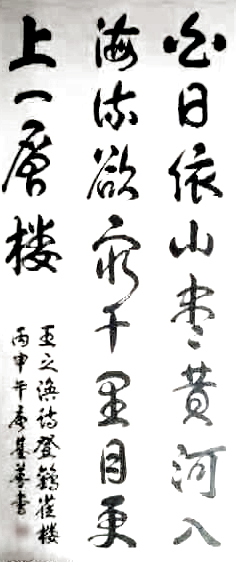 白日依山尽黄河入
海流欲穷千里目更
上一層楼
王之涣诗登鹳雀楼
丙申年基書